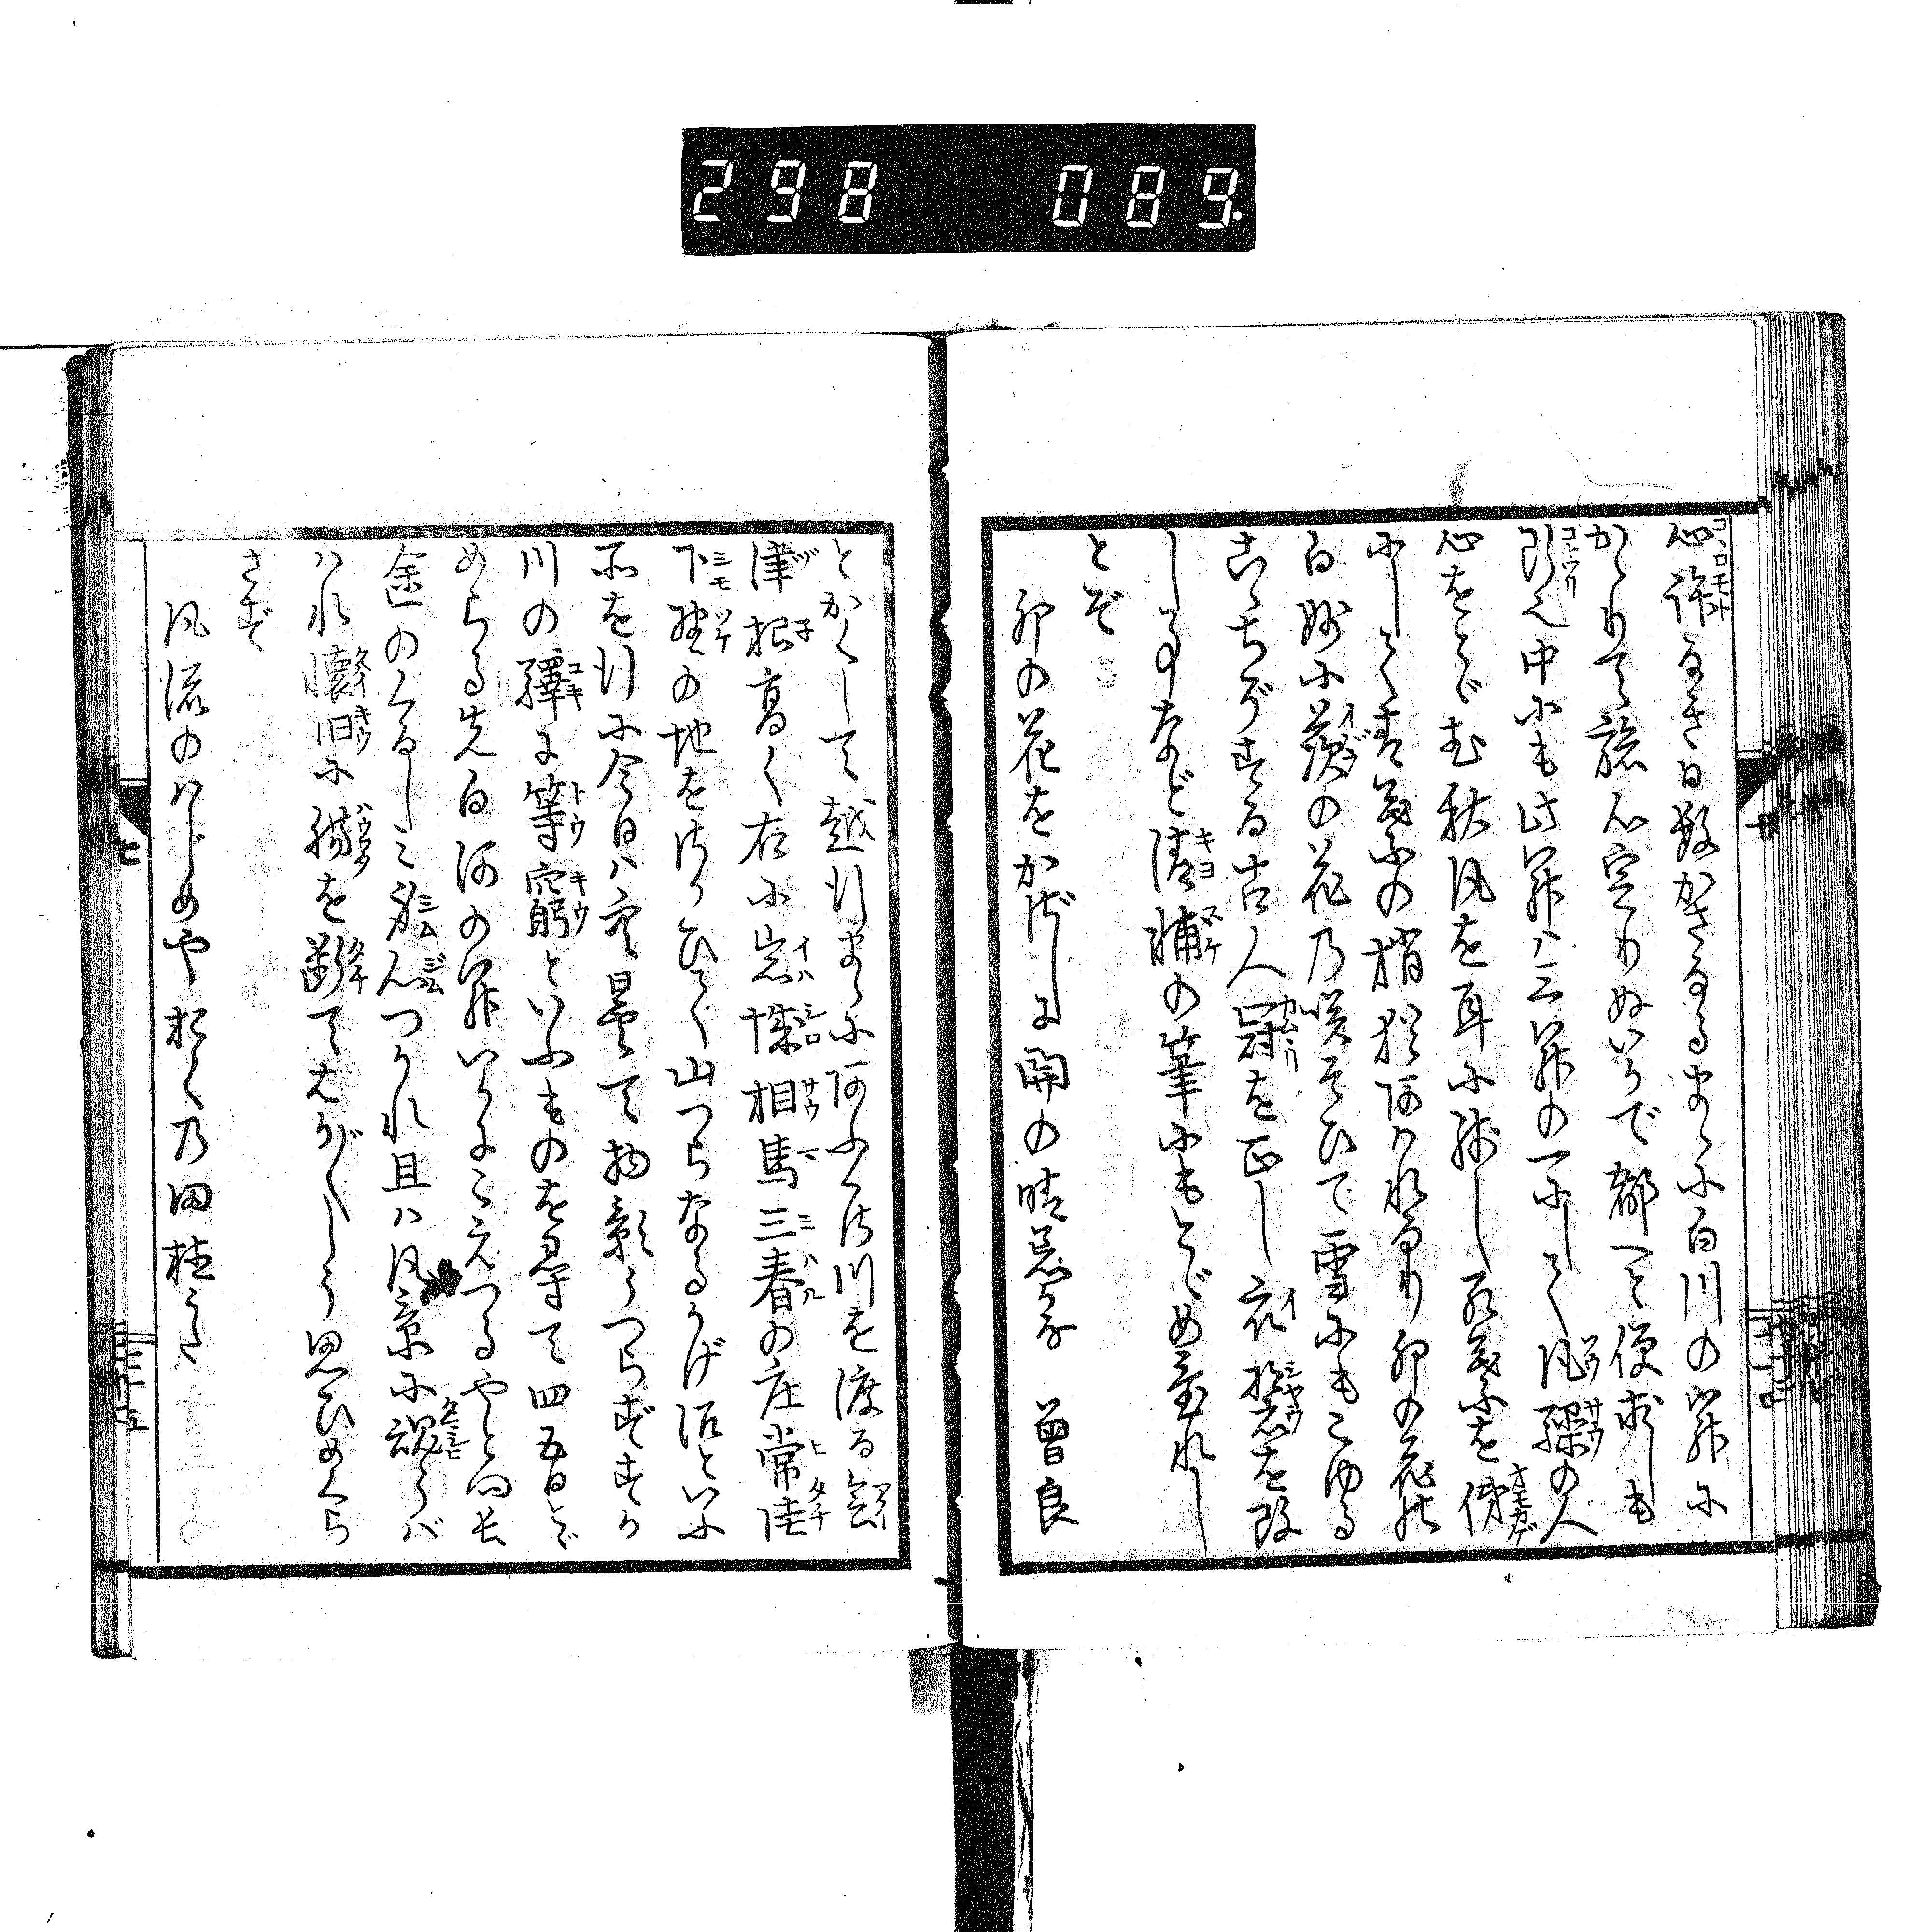 298 089.
心許なき日数かさなるまゝに白川の関に
かゝりて旅心定りぬいかで都へと便求しも
断也中にも此関ハ三関の一にして風騒の人
心をとゞむ秋風を耳に残し紅葉を俤
にして青葉の梢猶あハれなり卯の花の
白妙に茨の花の咲そひて雪にもこゆる
こゝちぞする古人冠を正し衣装を改
し事など清輔の筆にもとゞめ置れし
とぞ
卯の花をかざしに関の晴着かな 曾良
とかくして越行まゝにあふくま川を渡る会
津根高く右に岩城相馬三春の庄常陸
下野の地をさかひて山つらなるかげ沼といふ
所を行に今日ハ空曇て物影うつらずすか
川の驛に等窮といふものを尋て四五日とゞ
めらる先白河の関いかにこえつるやと問長
途のくるしミ身心つかれ且ハ風景に魂うバ
ハれ懐旧に腸を断てはかゞしう思ひめくら
さず
風流のハじめやおくの田植うた